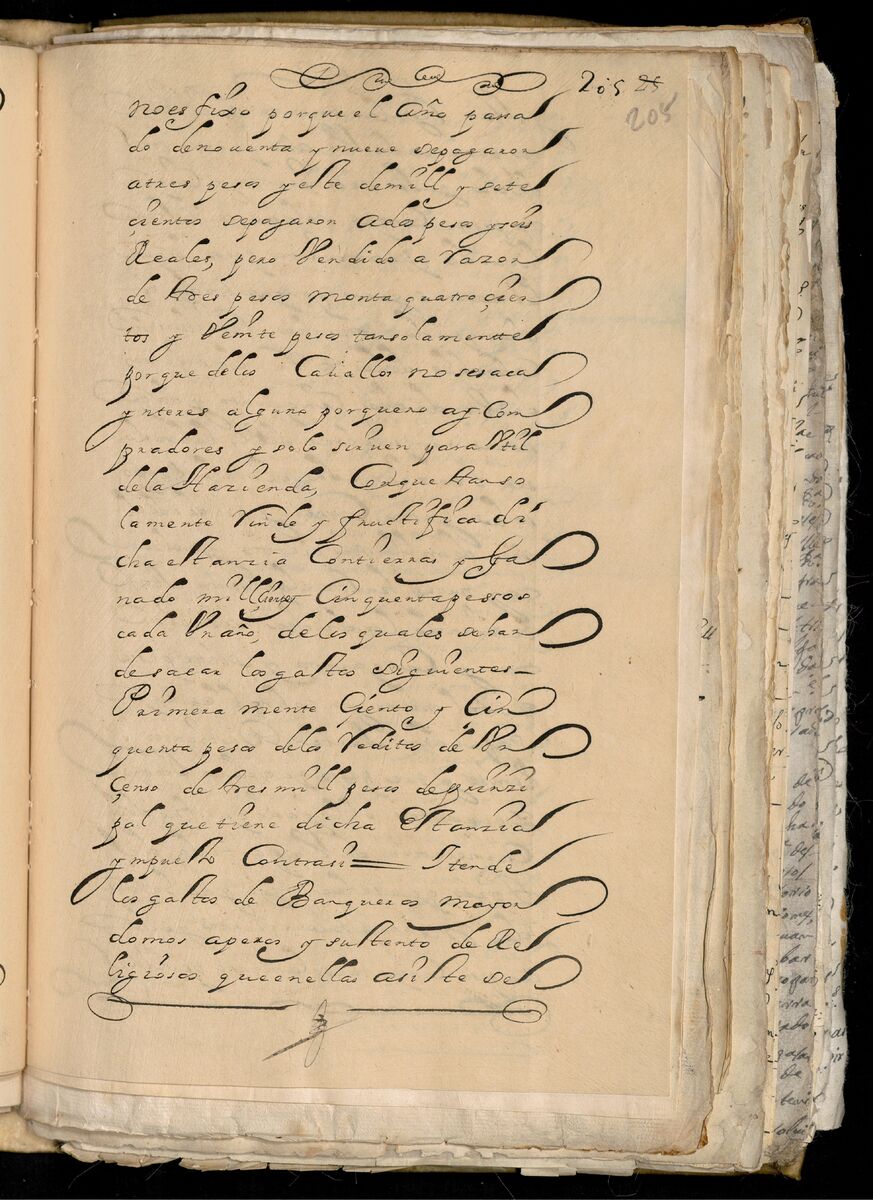 205 25
205
no es fixo porque el Año passa
do de noventa y nueve se pagaron
a tres pesos y este de mill y sete
çientos se pagaron a dos pesos y seis
Reales, pero Vendido a razon
de tres pesos monta quatroçien
tos y Veinte pesos tan solamentte
porque de los Cavallos no se saca
ynteres alguno porque no ay Com
pradores y solo siruen para Vtil
de la Hazienda, Conque tan so
lamente Rinde y fructifica di
cha estanzia Con tierras y Ga
nado mill y Cinquenta pessos
cada Vn año, de los quales se han
de sacar los gastos siguientes_
Primera mente Ciento y Cin
quenta pesos de los Reditos de Vn
Çenso de tres mill pesos de prinzi
pal que tiene dicha Estanzia
ympuesto Contra si = Iten de
los gastos de Baqueros mayor
domos aperos y sustento de Re
ligiosos que en ellas asiste se